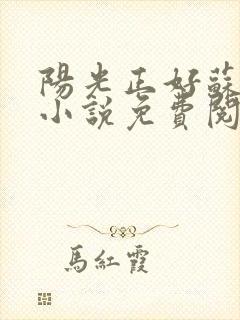 陽光正好蘇
小說免費閱
馬紅霞